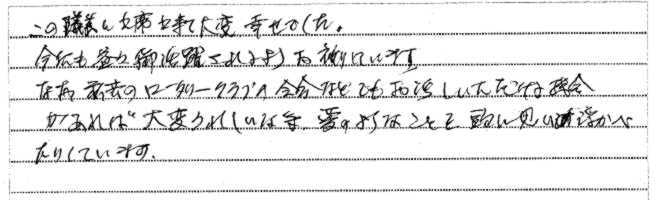 この議義に出席出来て大変幸せでした。
今后も益々御活躍されますようお祈りしています
なお 東京のロータリークラブの会合などでもお話しいただける機会
があれば 大変うれしいな等 夢のようなことを 頭に思い浮かべ
たりしています。